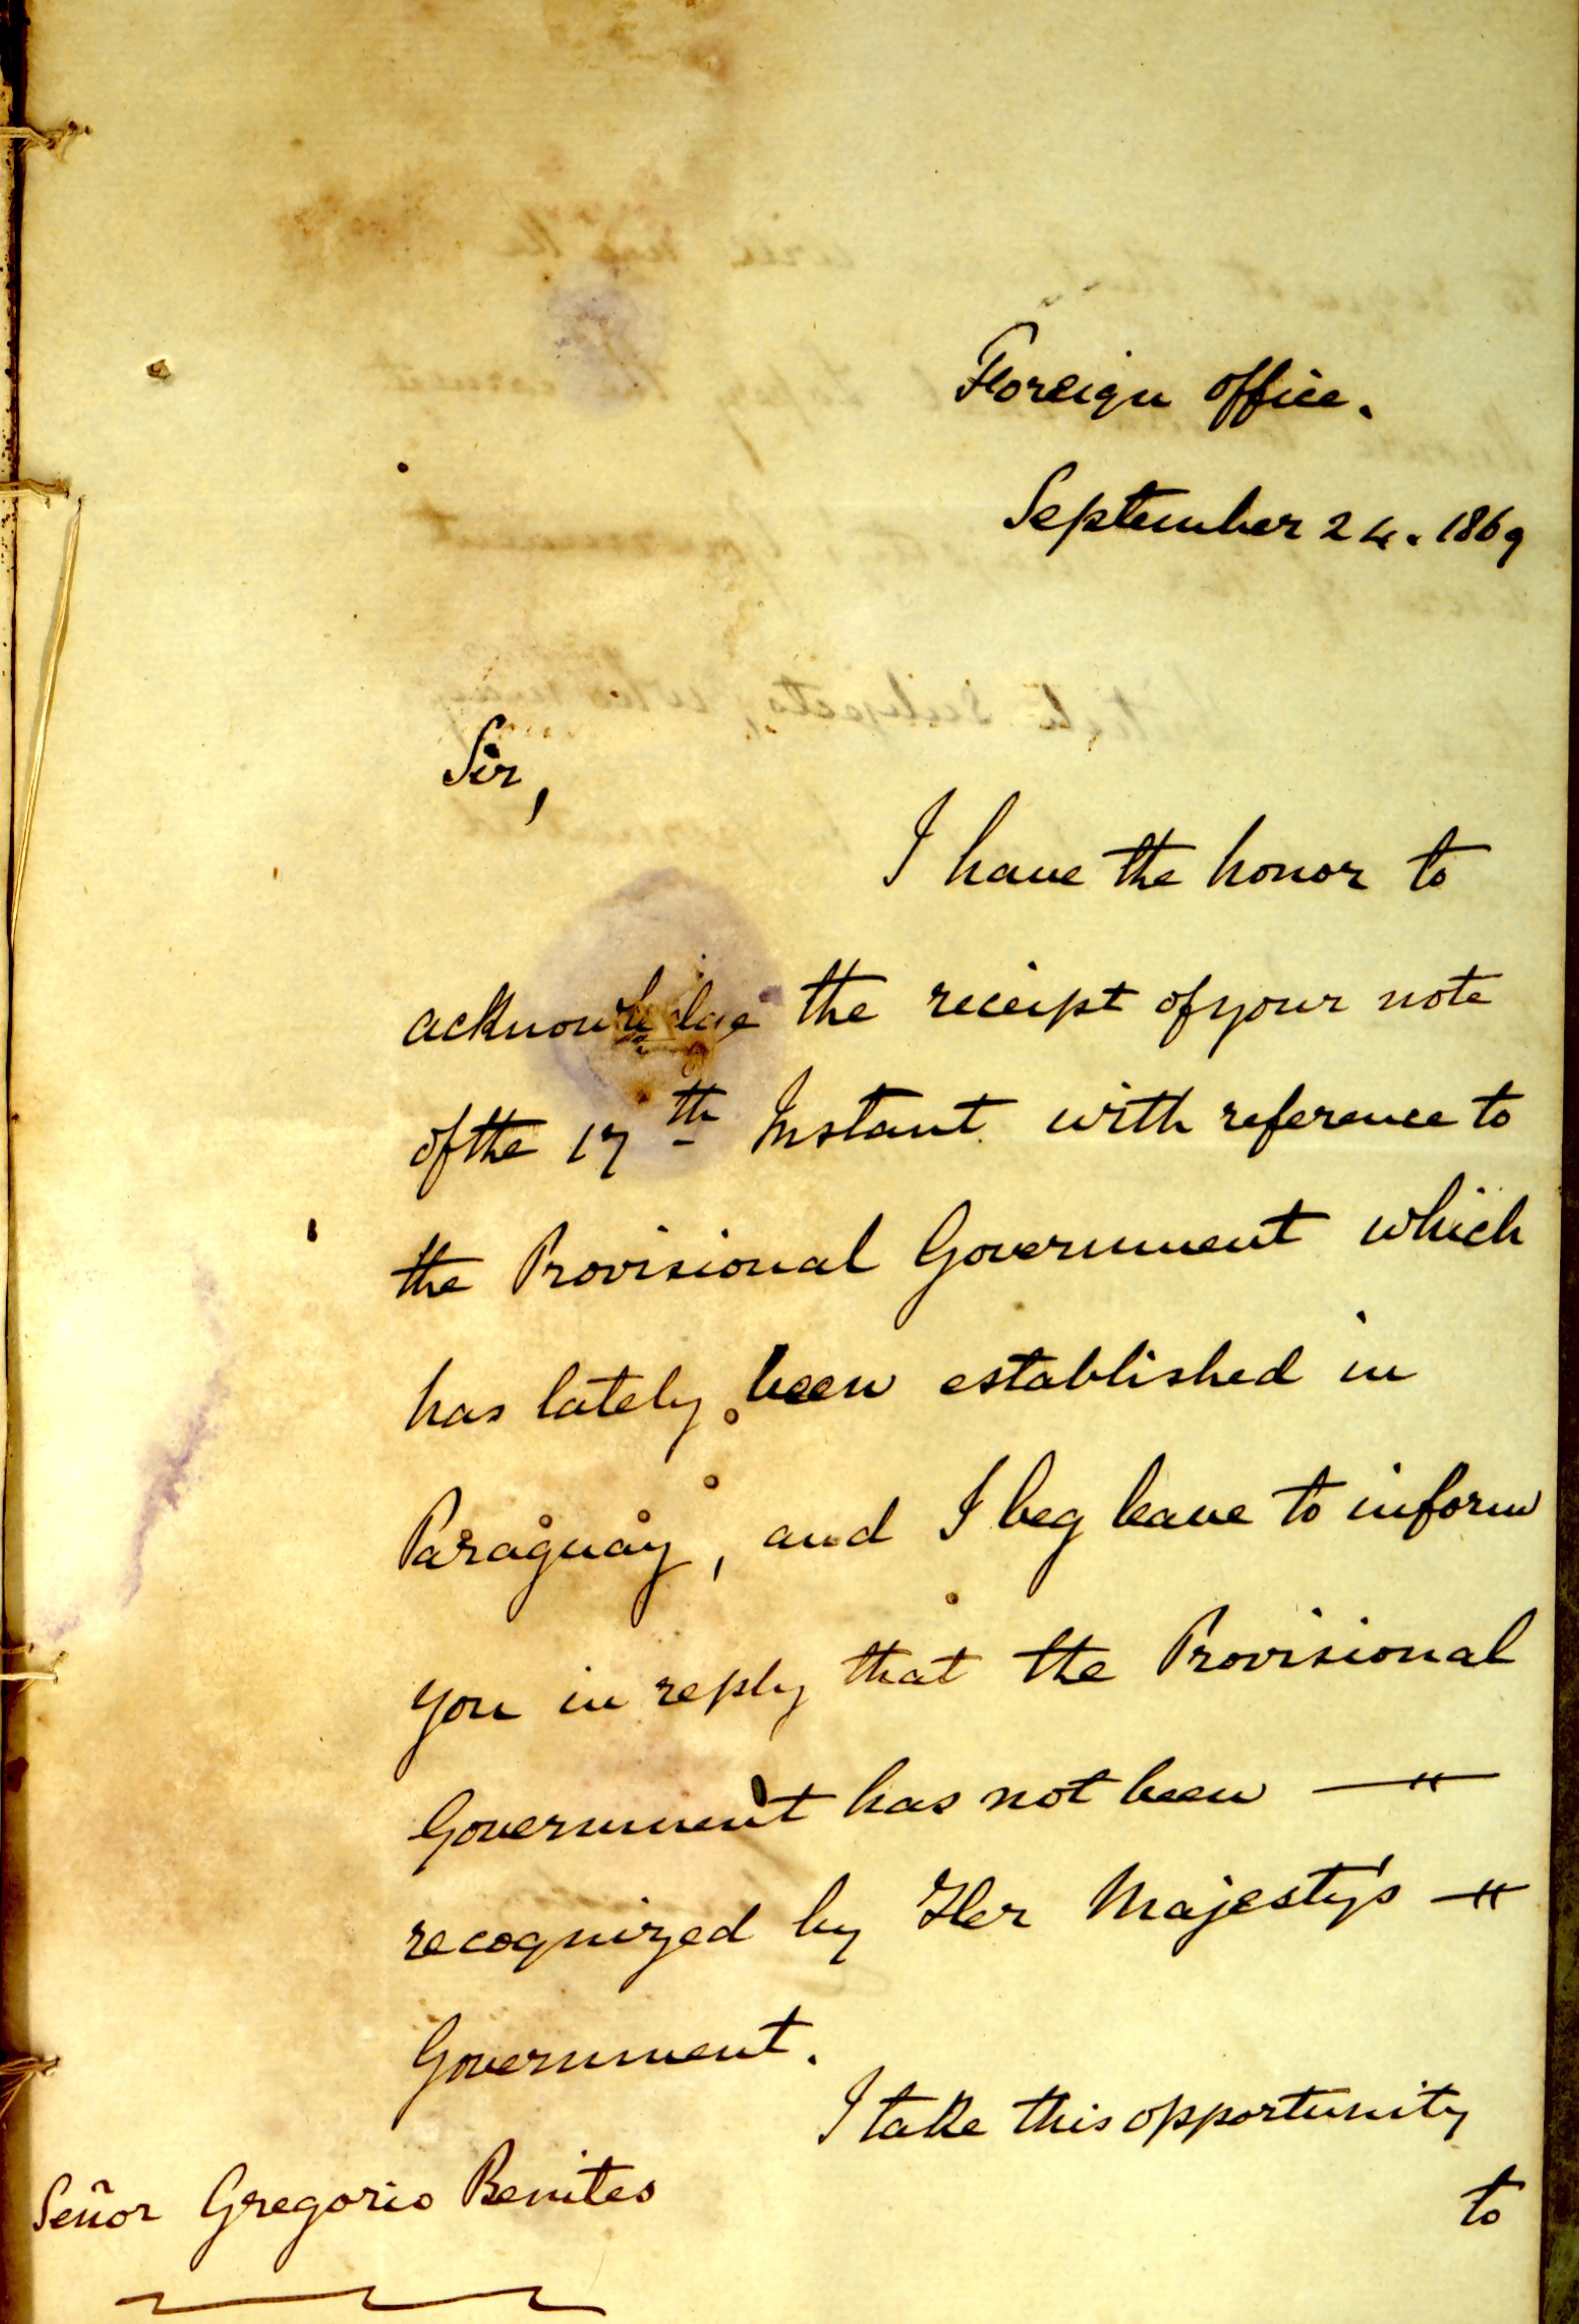 Foreign Office.
September 24. 1869
Sir,
I have the honor to
acknowledge the receipt of your note
of the 17th Instant with reference to
the Provisional Government which
has lately been established in
Paraguay, and I beg leave to inform
you in reply that the Provisional
Government has not been
recognized by Her Majesty's
Government.
I take this opportunity
to
Señor Gregorio Benites